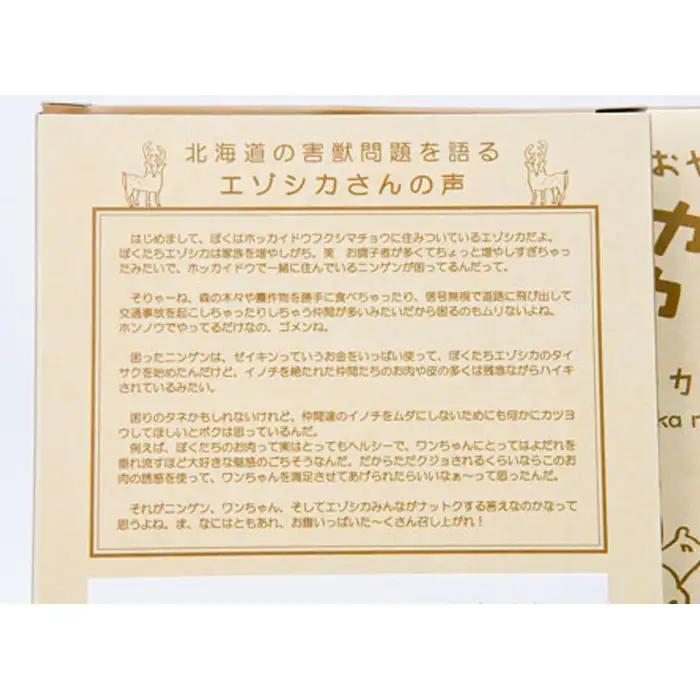 北海道の害獣問題を語る
エゾシカさんの声
はじめまして、ぼくはホッカイドウフクシマチョウに住みついているエゾシカだよ。
ぼくたちエゾシカは家族を増やしがち。笑　お調子者が多くてちょっと増やしすぎちゃっ
たみたいで、ホッカイドウで一緒に住んでいるニンゲンが困ってるんだって。
そりゃーね、森の木々や農作物を勝手に食べちゃったり、信号無視で道路に飛び出して
交通事故を起こしちゃったりしちゃう仲間が多いみたいだから困るのもムリないよね。
ホンノウでやってるだけなの、ゴメンね。
困ったニンゲンは、ゼイキンっていうお金をいっぱい使って、ぼくたちエゾシカのタイ
サクを始めたんだけど、イノチを絶たれた仲間たちのお肉や皮の多くは残念ながらハイキ
されているみたい。
困りのタネかもしれないけれど、仲間達のイノチをムダにしないためにも何かにカツヨ
ウしてほしいとボクは思っているんだ。
例えば、ぼくたちのお肉って実はとってもヘルシーで、ワンちゃんにとってはよだれを
垂れ流すほど大好きな魅惑のごちそうなんだ。だからただクジョされるくらいならこのお
肉の誘惑を使って、ワンちゃんを満足させてあげられたらいいなぁ～って思ったんだ。
それがニンゲン、ワンちゃん、そしてエゾシカみんながナットクする答えなのかなって
思うよね。ま、なにはともあれ、お腹いっぱいた～くさん召し上がれ！
おや
カ
カ
ka n